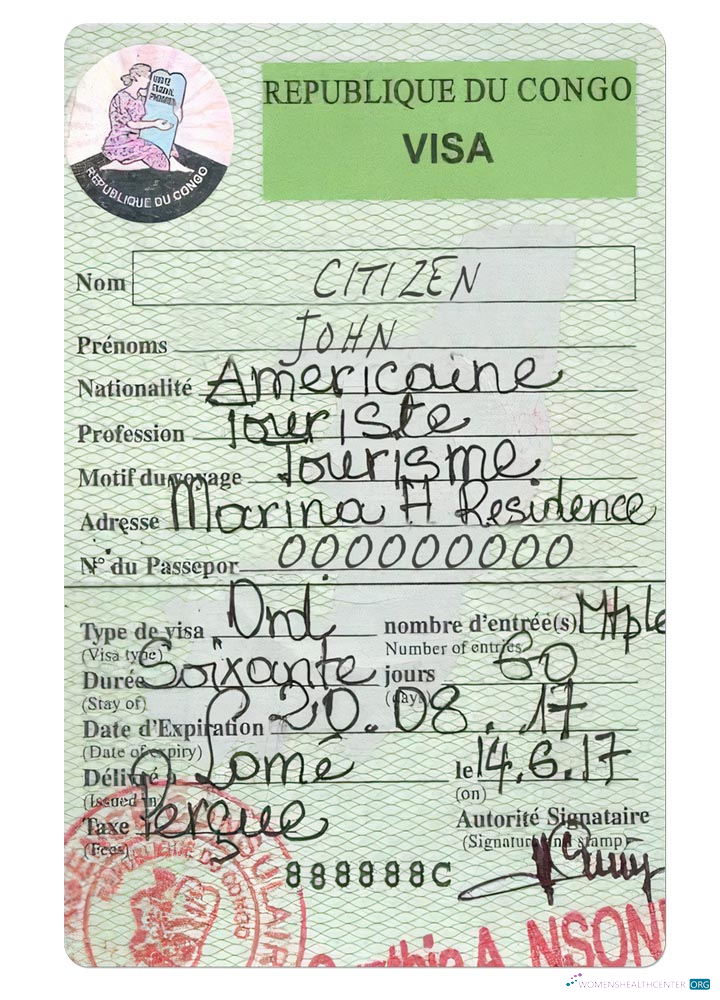 REPUBLIQUE DU CONGO
VISA
REPUBLIQUE DU CONGO
Nom CITIZEN
Prénoms JOHN
Nationalité Americaine
Profession Touriste
Motif du voyage Tourisme
Adresse Marina H Residence
N° du Passepor 000000000
Type de visa Ord. nombre d'entrée(s) Mtple
(Visa type) Number of entries
Durée Soixante jours 60
(Stay of) (days)
Date d'Expiration 20.08.17
(Date of expiry)
Délivré à Lomé le 14.6.17
(Issued in) (on)
Taxe Perçue Autorité Signataire
(Fees) (Signature and stamp)
888888C
A. NSON
WOMENSHEALTHCENTER.ORG